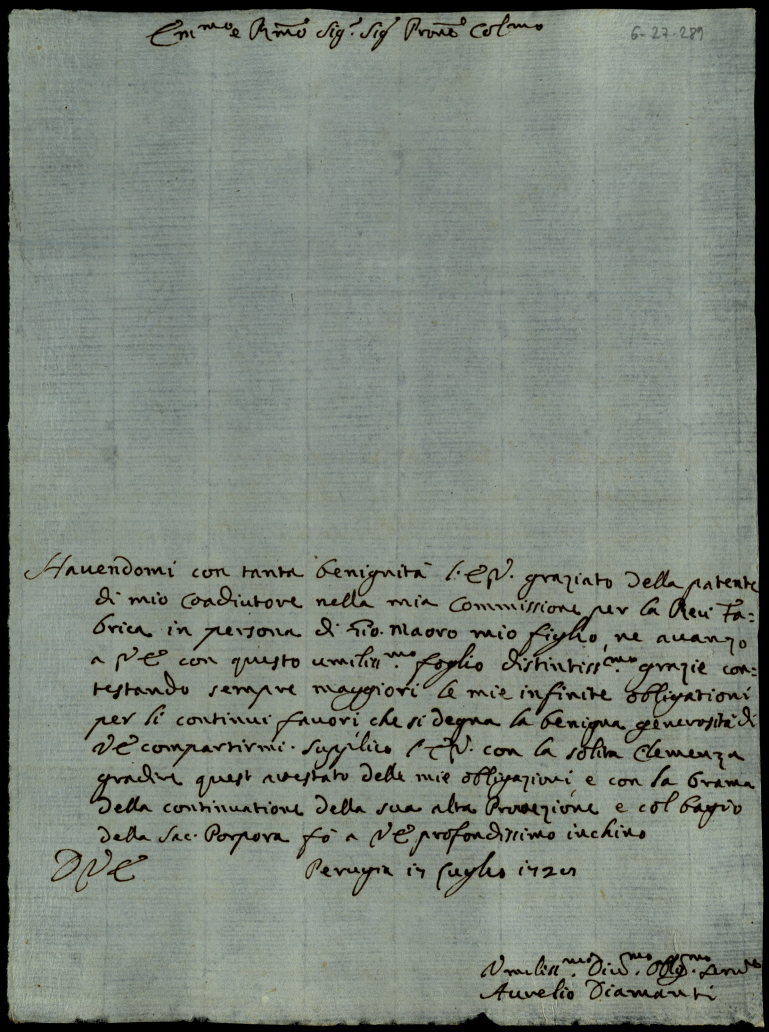 Em.mo e R.mo Sig.r Sig.r Prone Col.mo
6-27-289
Havendomi con tanta benignità l'E.V. graziato della patente
di mio Coadiutore nella mia Commissione per la Rev. Fa=
brica in persona di Gio. Mauro mio figlio, ne avanzo
a V.E. con questo umiliss.mo foglio distintiss.me grazie con=
testando sempre maggiori le mie infinite obligationi
per li continui favori che si degna la benigna generosità di
V.E. compartirmi. Supplico l'E.V. con la solita Clemenza
gradire quest'attestato delle mie obligazioni e con la brama
della continuatione della sua alta Protezione e col bagio
della Sac. Porpora fò a V.E. profondissimo inchino
D V E Perugia 17 Luglio
Umiliss.mo Div.mo Obblig.mo Serv.re
Aurelio Diamanti